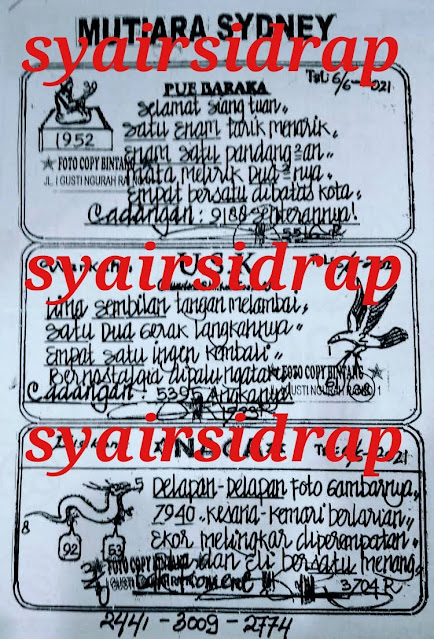 MUTIARA SYDNEY
syairsidrap
PUE BARAKA
Tgl: 6/6-2021
Selamat siang tuan..
Satu Enam tarik menarik.
Enam Satu pandang²an..
Mata melirik Dua²nya.
Empat bersatu dibatas kota.
Cadangan: 9188
1952
★ FOTO COPY BINTANG
JL. I GUSTI NGURAH RAI
syairsidrap
U.S.K
Lima Sembilan tangan melambai,
Satu Dua Gerak langkahnya..
Empat Satu ingin kembali..
Bernostalgia
Cadangan: 5395 Angkanya
★ FOTO COPY BINTANG
GUSTI NGURAH RAI NO 1
syairsidrap
Delapan-Delapan Foto Gambarnya,
7940.. kesana-kemari berlarian..
Ekor melingkar diperempatan.
Dua dan Eli bersatu menang.
3704 R
5
8
92
53
FOTO COPY
I GUSTI NGURAH RAI
2441-3009-2774